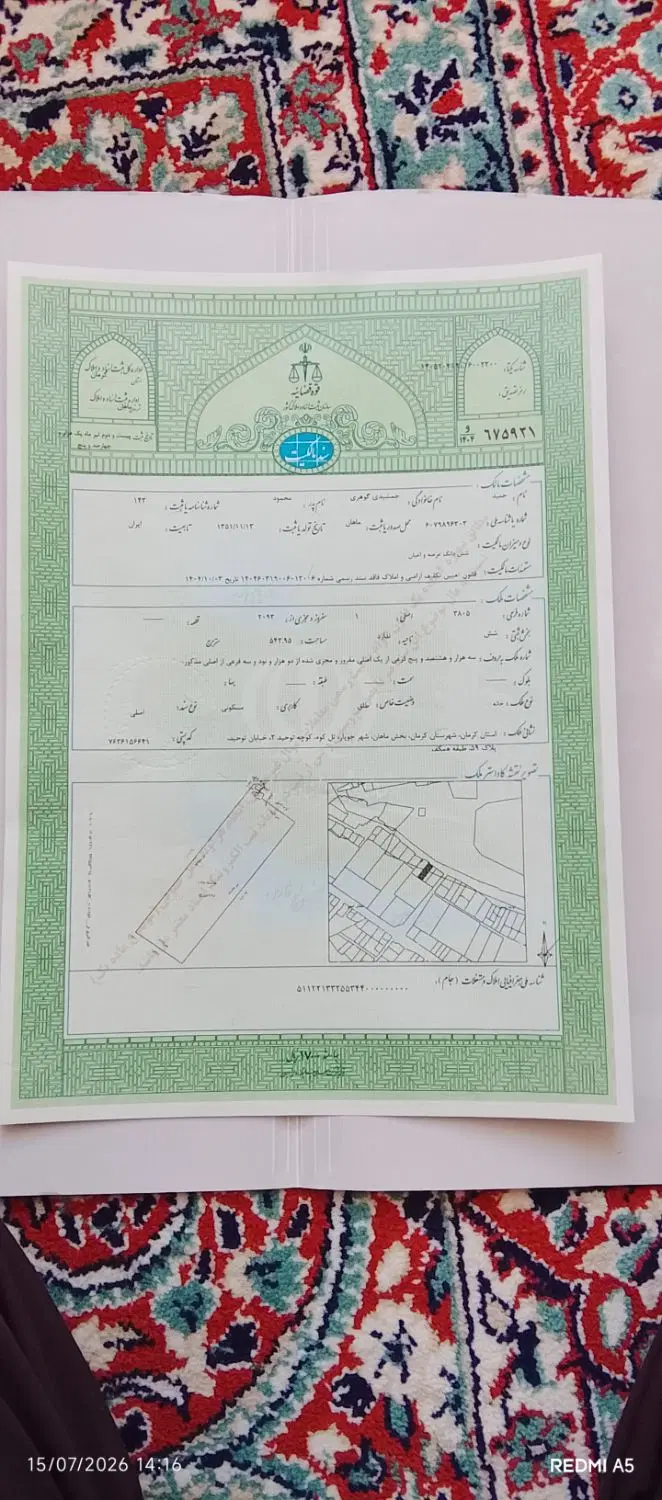 قوه قضائیه
سازمان ثبت اسناد و املاک کشور
اداره کل ثبت اسناد و املاک
استان کرمان
اداره ثبت اسناد و املاک
ماهان
تاریخ ثبت بیست و دوم تیر ماه یک هزار و چهارصد و پنج
شناسه یکتا:
رمز تصدیق:
۶۷۵۹۳۱ و ۱۴۰۴
سند مالکیت
مشخصات مالک:
نام: حمید نام خانوادگی: جمشیدی گوهری نام پدر: محمود شماره شناسنامه یا ثبت: ۱۴۳
شماره یا شناسه ملی: ۶۰۷۹۸۹۶۳۰۳ محل صدور یا ثبت: ماهان تاریخ تولد یا ثبت: ۱۳۵۱/۱۱/۱۳ تابعیت: ایران
نوع و میزان مالکیت: شش دانگ عرصه و اعیان
مستندات مالکیت: قانون تعیین تکلیف اراضی و املاک فاقد سند رسمی شماره ۱۴۰۴۶۰۳۱۹۰۰۶۰۱۲۰۰۶ تاریخ ۱۴۰۴/۱۰/۰۳
مشخصات ملک:
شماره فرعی: ۳۸۰۵ اصلی: ۱ مفروز و مجزی از: ۲۰۹۳ قطعه: ——
بخش ثبتی: شش ناحیه: ندارد مساحت: ۵۴۳.۹۵ مترمربع
شماره ملک به حروف: سه هزار و هشتصد و پنج فرعی از یک اصلی مفروز و مجزی شده از دو هزار و نود و سه فرعی از اصلی مذکور.
بلوک: —— سمت: —— طبقه: —— بنا: ——
نوع ملک: خانه وضعیت خاص: مطلق کاربری: مسکونی نوع سند: اصلی
نشانی ملک: استان کرمان، شهرستان کرمان، بخش ماهان، شهر جوپار، تل کود، کوچه توحید ۲، خیابان توحید، کدپستی: ۷۶۳۶۱۵۶۶۴۱
پلاک ۵۹، طبقه همکف،
تصویر نقشه کاداستر ملک
شناسه ملی جغرافیایی املاک و مستغلات (جام):
۵۱۱۲۲۱۳۳۲۵۵۳۴۴۰۰۰۰۰۰۰۰۰
15/07/2026 14:16
REDMI A5